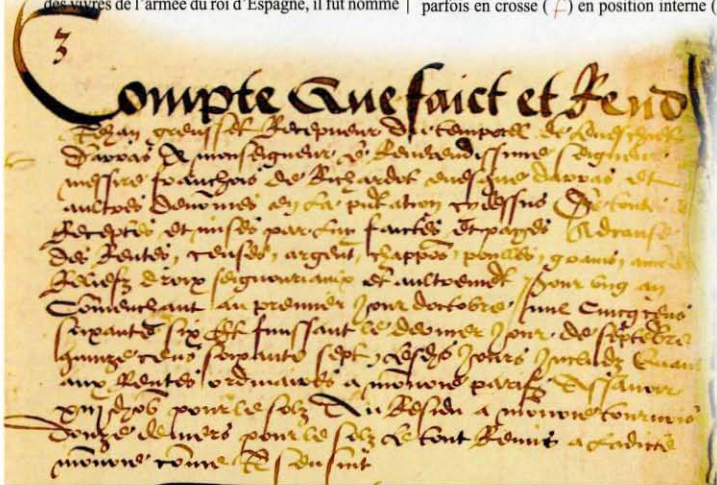 des vivres de l'armée du roi d'Espagne, il fut nommé
parfois en crosse (f) en position interne (
3
Compte Que faict et Rend
Jehan grenisset Recepveur du temporel de Leveschiet
Darras A monseigneur et Reverendissime seigneur
messire franchois de Richardot evesque darras et
aultres denomes en la pntation cy dessus De toute
Receptes et mises par luy faictes et payes Adcause
des Rentes, censes, argent, chappos, poulles, grains,
Reliefz droix seigneuriaulx et aultremēt pour ung an
Cōmenchant au premier Jour doctobre mil Cincq cens
soixante six Et finissant le dernier Jour de septebre
quinze cens soixante sept, lesdis Jours Includz Quant
aux Rentes ordinaires a monnoie parisis Assavoir
pour le solz Au Residu a monnoie tournois
Douze deniers pour le solz Le tout Remis a Ladicte
monnoie cōme Il sensuit